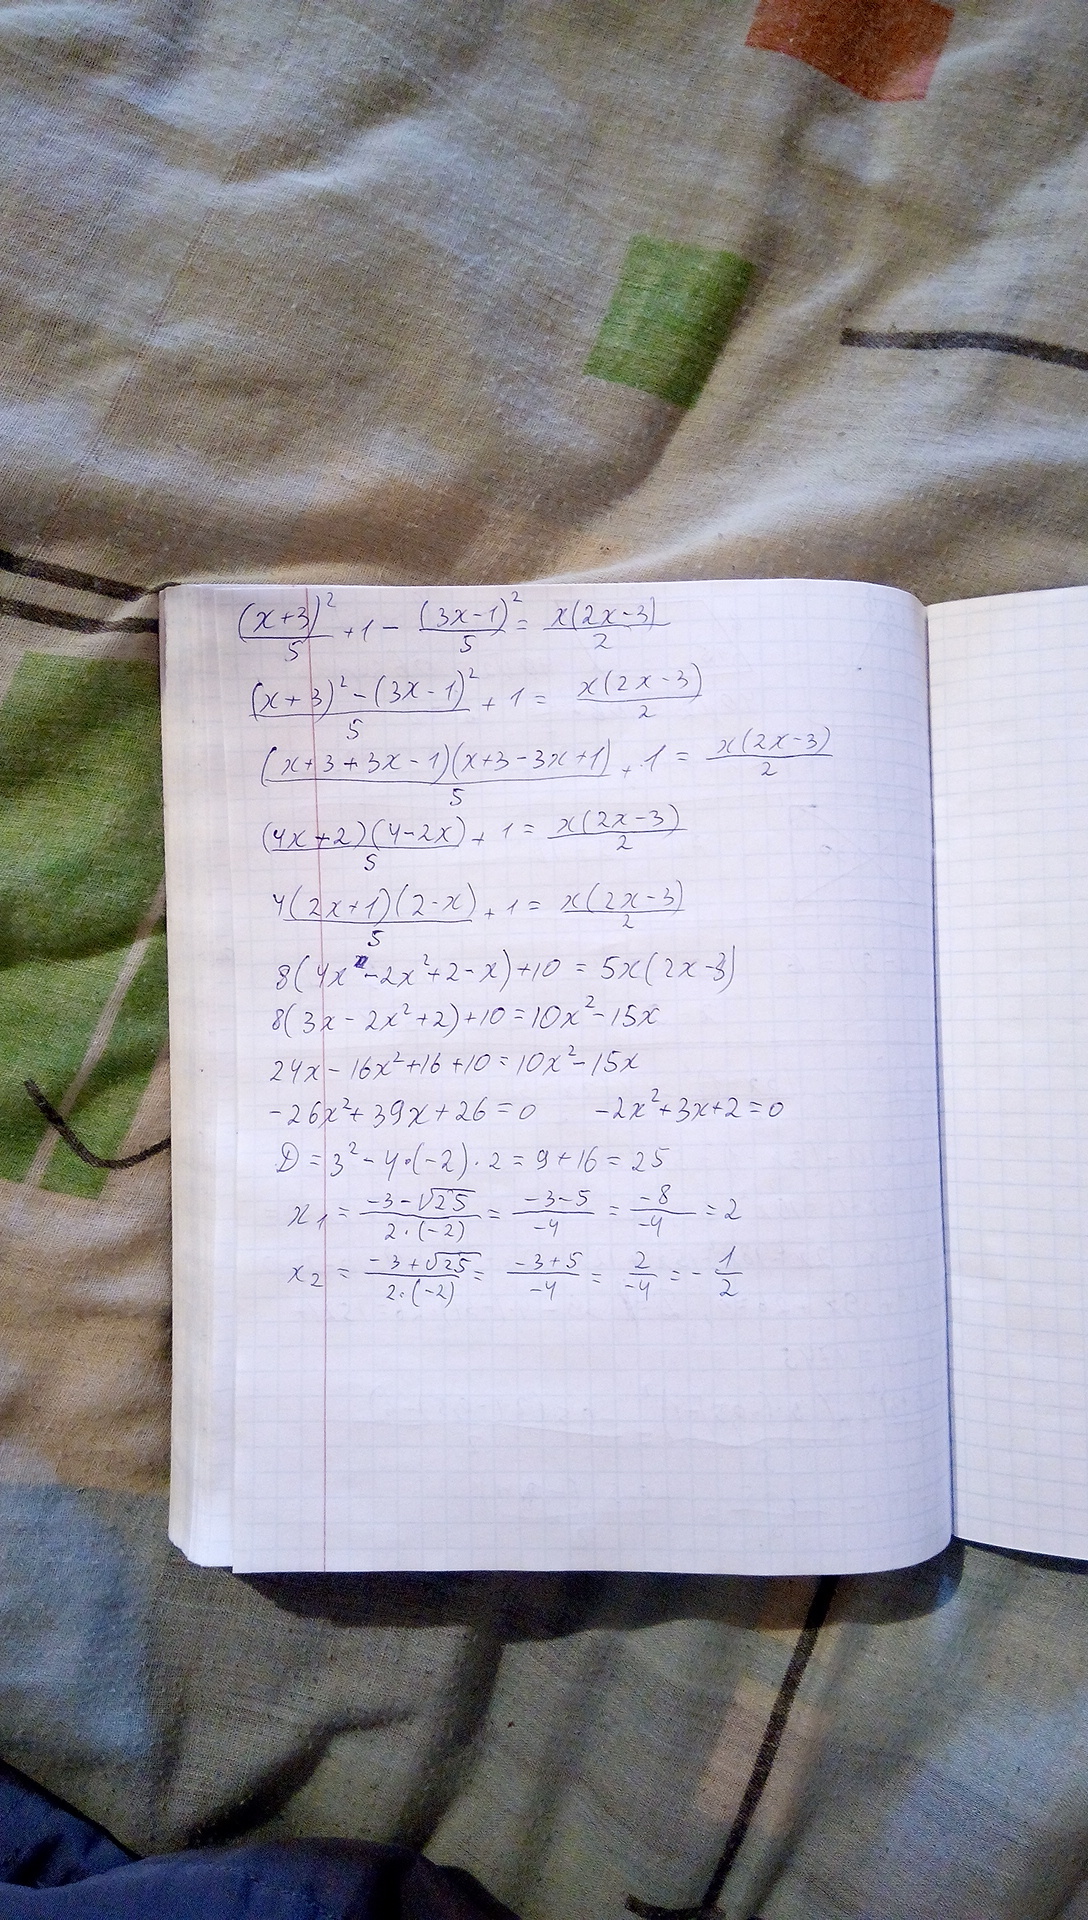 (x+3)²/5 + 1 - (3x-1)²/5 = x(2x-3)/2
((x+3)² - (3x-1)²)/5 + 1 = x(2x-3)/2
(x+3+3x-1)(x+3-3x+1)/5 + 1 = x(2x-3)/2
(4x+2)(4-2x)/5 + 1 = x(2x-3)/2
4(2x+1)(2-x)/5 + 1 = x(2x-3)/2
8(4x-2x²+2-x)+10 = 5x(2x-3)
8(3x-2x²+2)+10=10x²-15x
24x-16x²+16+10=10x²-15x
-26x²+39x+26=0 -2x²+3x+2=0
D=3²-4·(-2)·2=9+16=25
x₁ = (-3-√25)/(2·(-2)) = (-3-5)/(-4) = -8/-4 = 2
x₂ = (-3+√25)/(2·(-2)) = (-3+5)/(-4) = 2/-4 = -1/2